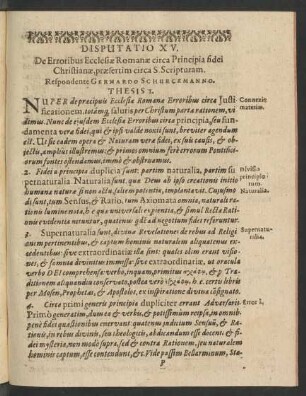 DISPUTATIO XV.
De Erroribus Ecclesiæ Romanæ circa Principia fidei
Christianæ, præsertim circa S. Scripturam.
Respondente GERHARDO SCHRECKMANNO.
THESIS I.
NUPER de præcipuis Ecclesiæ Romanæ Erroribus circa Justi
ficationem, totamq; salutis per Christum partæ rationem, vi
dimus. Nunc de ejusdem Ecclesiæ Erroribus circa principia, seu fun
damenta vera fidei, qui & ipsi valde noxii sunt, breviter agendum
est. Ut sic eadem opera & Naturam vera fidei, ex suis causis, & ob-
jectis, amplius illustremus; & primos omnium ferè errorum Pontifici-
orum fontes ostendamus, immò & obstruamus.
Connexio
materiæ.
2. Fidei principia duplicia sunt: partim naturalia, partim su
pernaturalia. Naturalia sunt, quæ Deus ab ipsa creatione incitæ
humanæ natura sinon actu, saltem potentia, implantavit. Cujusmo
di sunt, tum Sensus, & Ratio, tum Axiomata omnia, naturali ra
tionis lumine nota, & quæ universalis experientia, & simul Recta Rati-
onis evidentia nituntur, quatenus quid ad objectum fidei referuntur.
Divisio
principio-
rum.
Naturalia.
3. Supernaturalia sunt, divinæ Revelationes de rebus ad Religi
onem pertinentibus, & captum hominis naturalem aliquatenus ex-
cedentibus; sive extraordinariæ illæ sint: quales olim erant visio-
nes, & somnia divinitus immissa: sive extraordinariæ, ut oracula
verbo DEI comprehensa: verbo, inquam, primitus & p Tra-
ditionem aliquandiu conservato, postea verò h. e. certis libris
per Mosen, Prophetas, & Apostolos, ex inspiratione divina consignato.
Supernatu-
ralia.
4. Circa primi generis principia dupliciter errant Adversarii.
Primò generatim, dum eo & verbis, & potissimum reipsa, in omni-
benè fidei quæstionibus enervant quatenus judicium Sensus, & Ra
tionis, in rebus divinis, seu theologicis, abducendo eas à docente, & fi-
dei mysteria, non modò supra, sed & contra Rationem, seu naturalem
hominis captum, esse contendunt, &c. Vide passim Bellarminum, Sta-
Error 1.
P